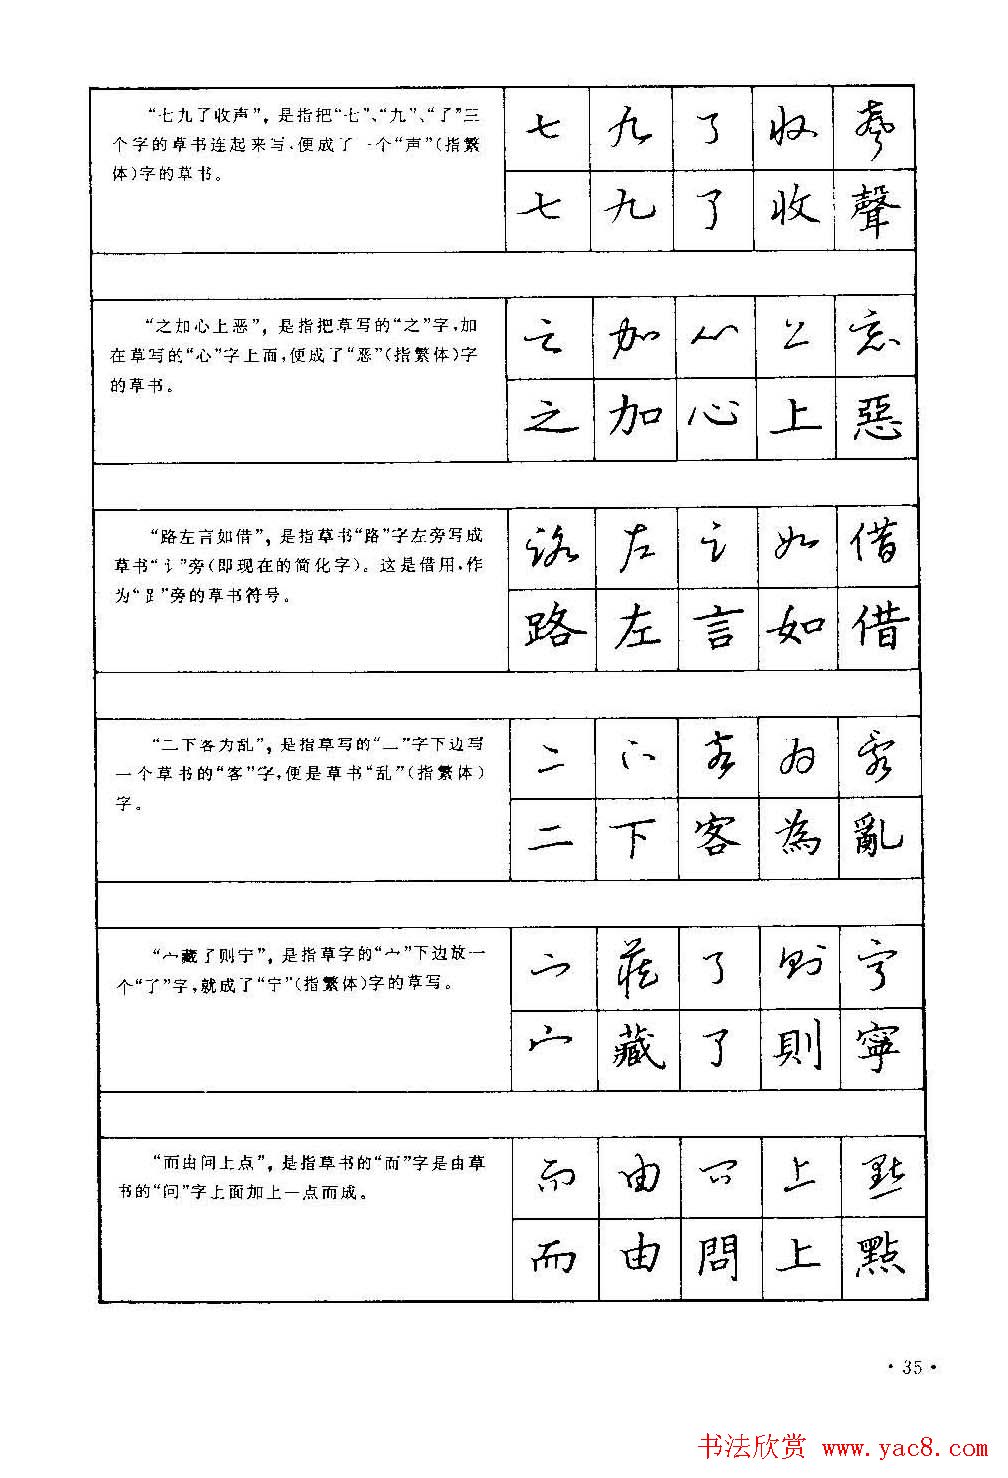 “七九了收声”，是指把“七”、“九”、“了”三
个字的草书连起来写，便成了一个“声”（指繁
体）字的草书。
七 九 了 收 聲
七 九 了 收 聲
“之加心上恶”，是指把草写的“之”字，加
在草写的“心”字上面，便成了“恶”（指繁体）字
的草书。
之 加 心 上 惡
之 加 心 上 惡
“路左言如借”，是指草书“路”字左旁写成
草书“讠”旁（即现在的简化字）。这是借用，作
为“⻊”旁的草书符号。
路 左 言 如 借
路 左 言 如 借
“二下客为乱”，是指草写的“二”字下边写
一个草书的“客”字，便是草书“乱”（指繁体）
字。
二 下 客 為 亂
二 下 客 為 亂
“宀藏了则宁”，是指草字的“宀”下边放一
个“了”字，就成了“宁”（指繁体）字的草写。
宀 藏 了 則 寧
宀 藏 了 則 寧
“而由问上点”，是指草书的“而”字是由草
书的“问”字上面加上一点而成。
而 由 問 上 點
而 由 問 上 點
·35·
书法欣赏 www.yac8.com